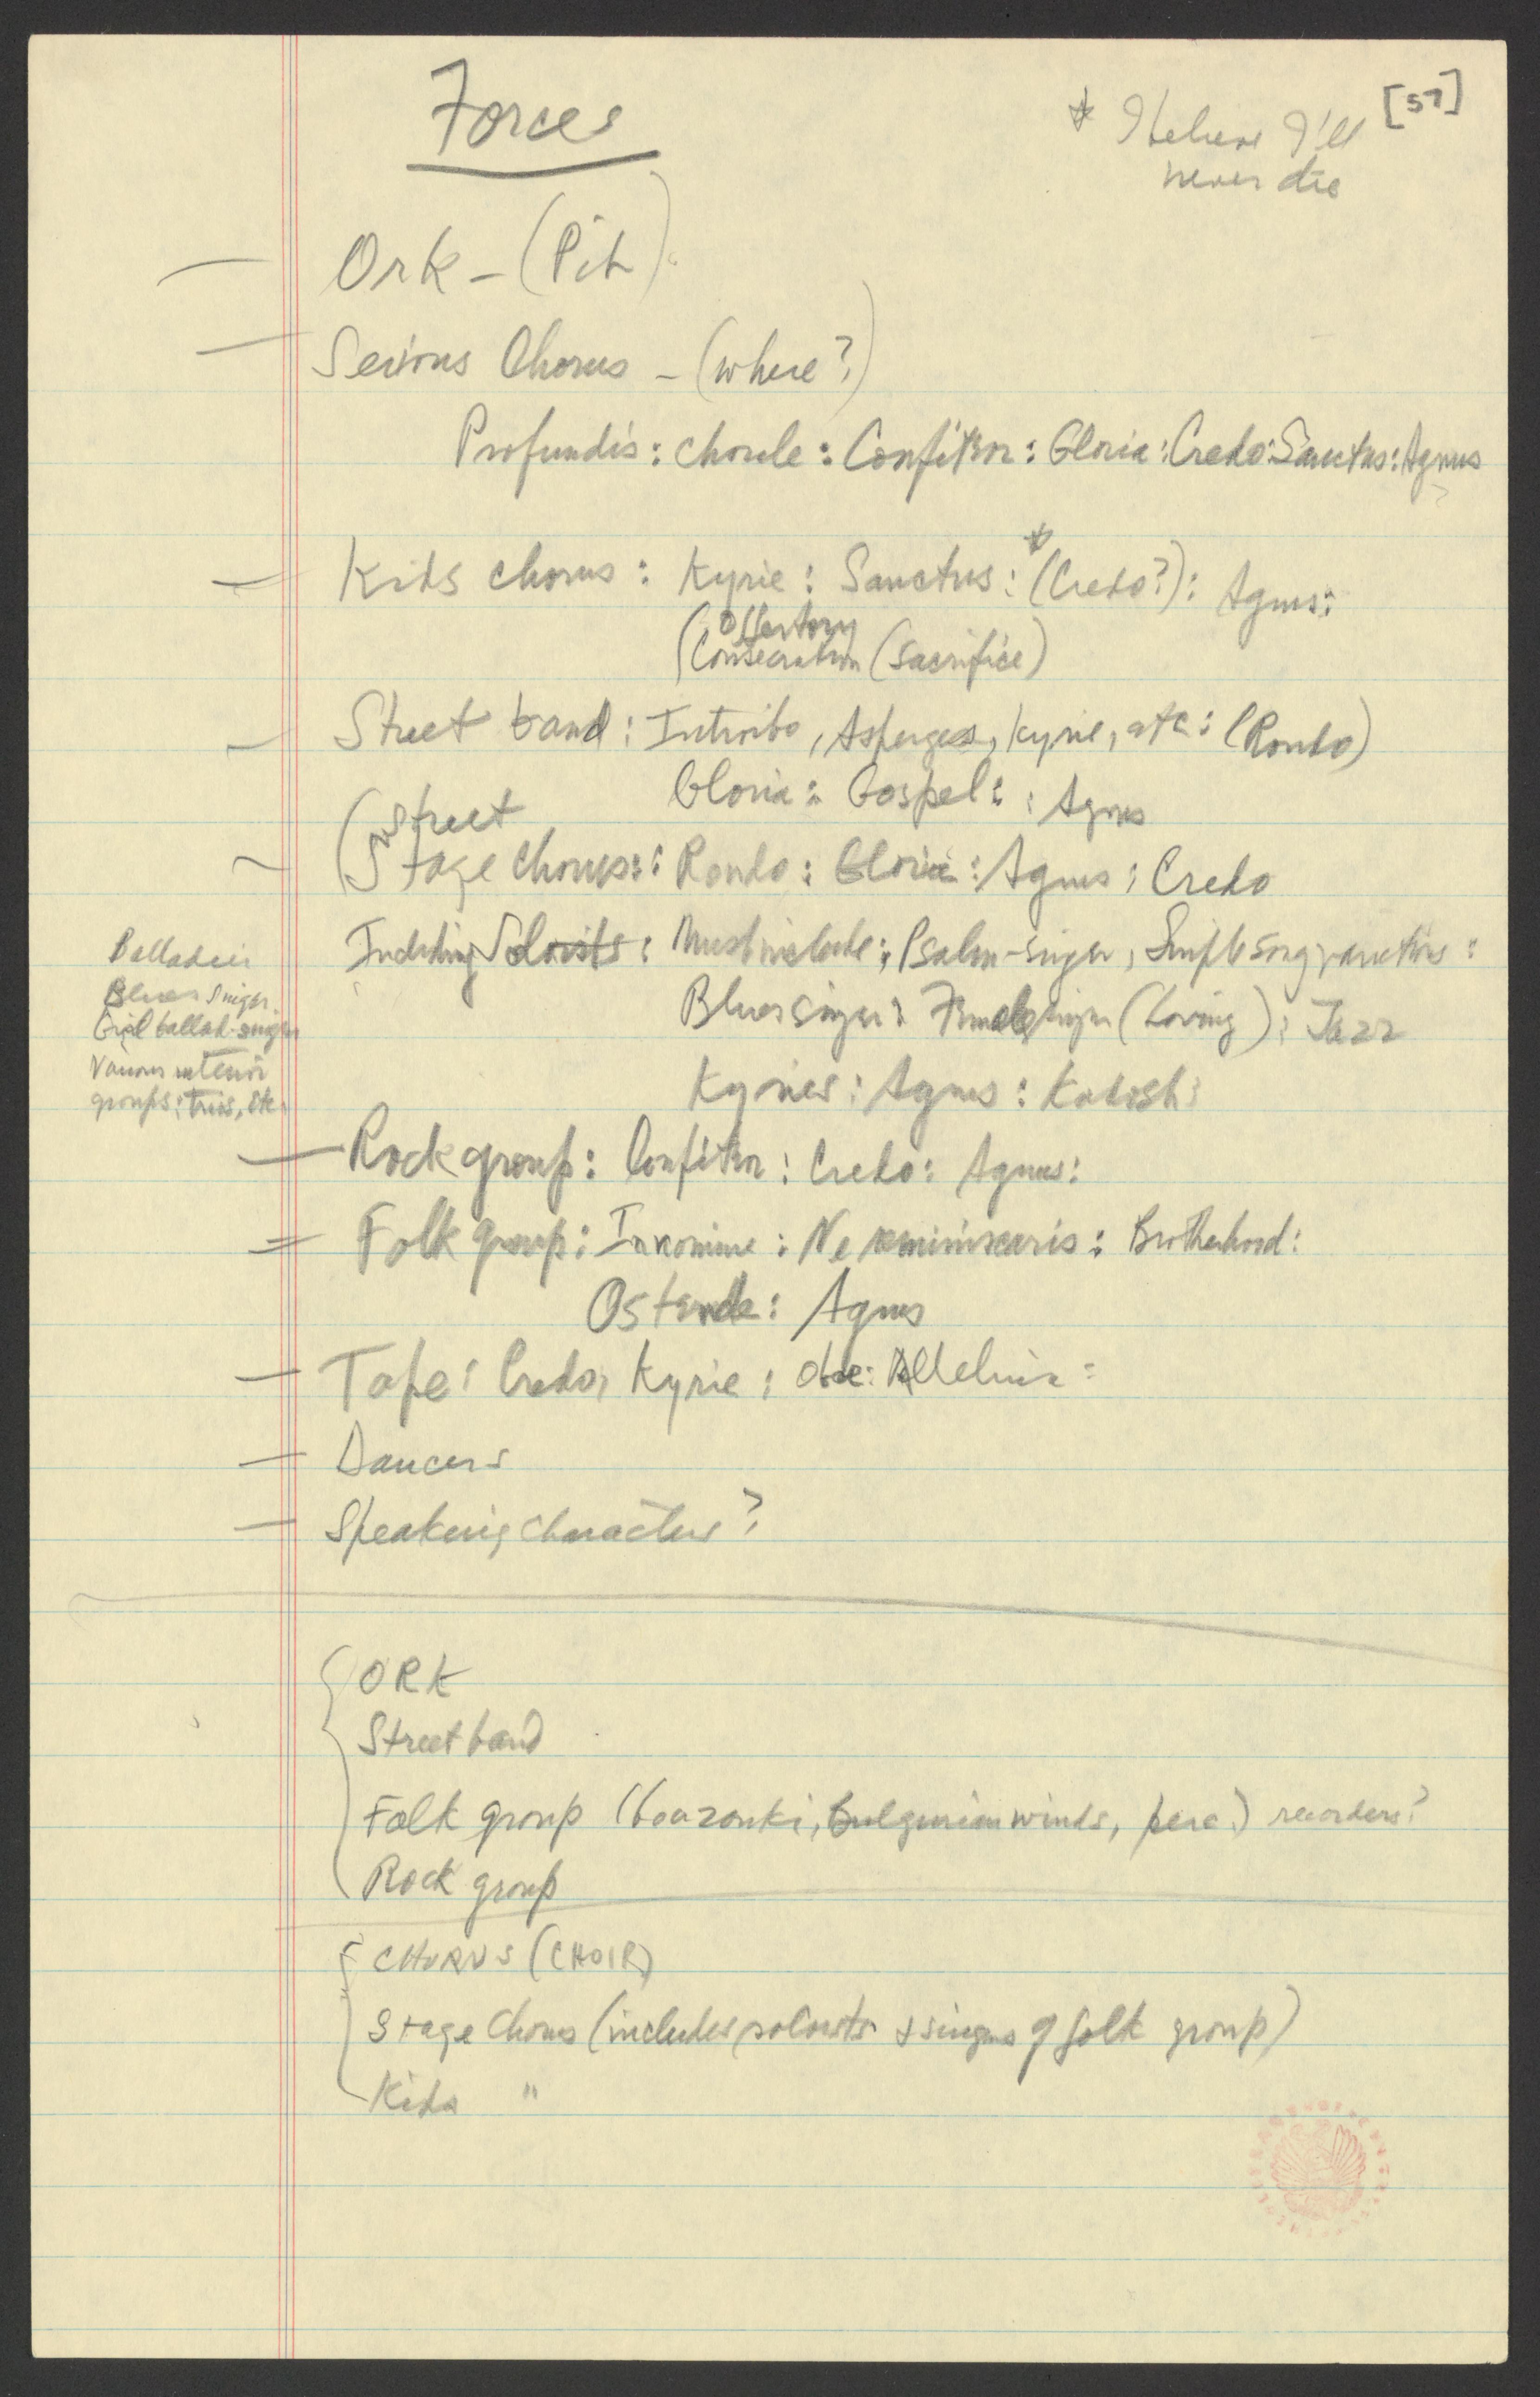 Forces
[57]
* I believe I'll
never die
Ork - (Pit)
Serious Chorus - (where?)
Profundis : Chorale : Confiteor : Gloria : Credo : Sanctus : Agnus
?
Kids chorus : Kyrie : Sanctus : * (Credo?) : Agnus :
(Offertory
(Consecration (Sacrifice)
Street band : Introibo, Asperges, Kyrie, etc : (Rondo)
Gloria : Gospel : : Agnus
(Street
(Stage Chorus : : Rondo : Gloria : Agnus : Credo
Including Soloists : Must include : Psalm-singer, Simple song variations :
Blues singer : Female singer (Loving) : Jazz
Kyries : Agnus : Kadish :
Balladeer
Blues Singer
Girl ballad-singer
Various interior
groups : trios, etc.
Rock group : Confiteor : Credo : Agnus :
Folk group : In nomine : Ne reminiscaris : Brotherhood :
Ostende : Agnus
Tape : Credo, Kyrie : oboe : Alleluia :
Dancers
Speaking characters ?
ORK
Street band
Folk group (bouzouki, Bulgarian winds, perc.) recorders?
Rock group
CHORUS (CHOIR)
Stage Chorus (includes soloists & singers of folk group)
Kids "